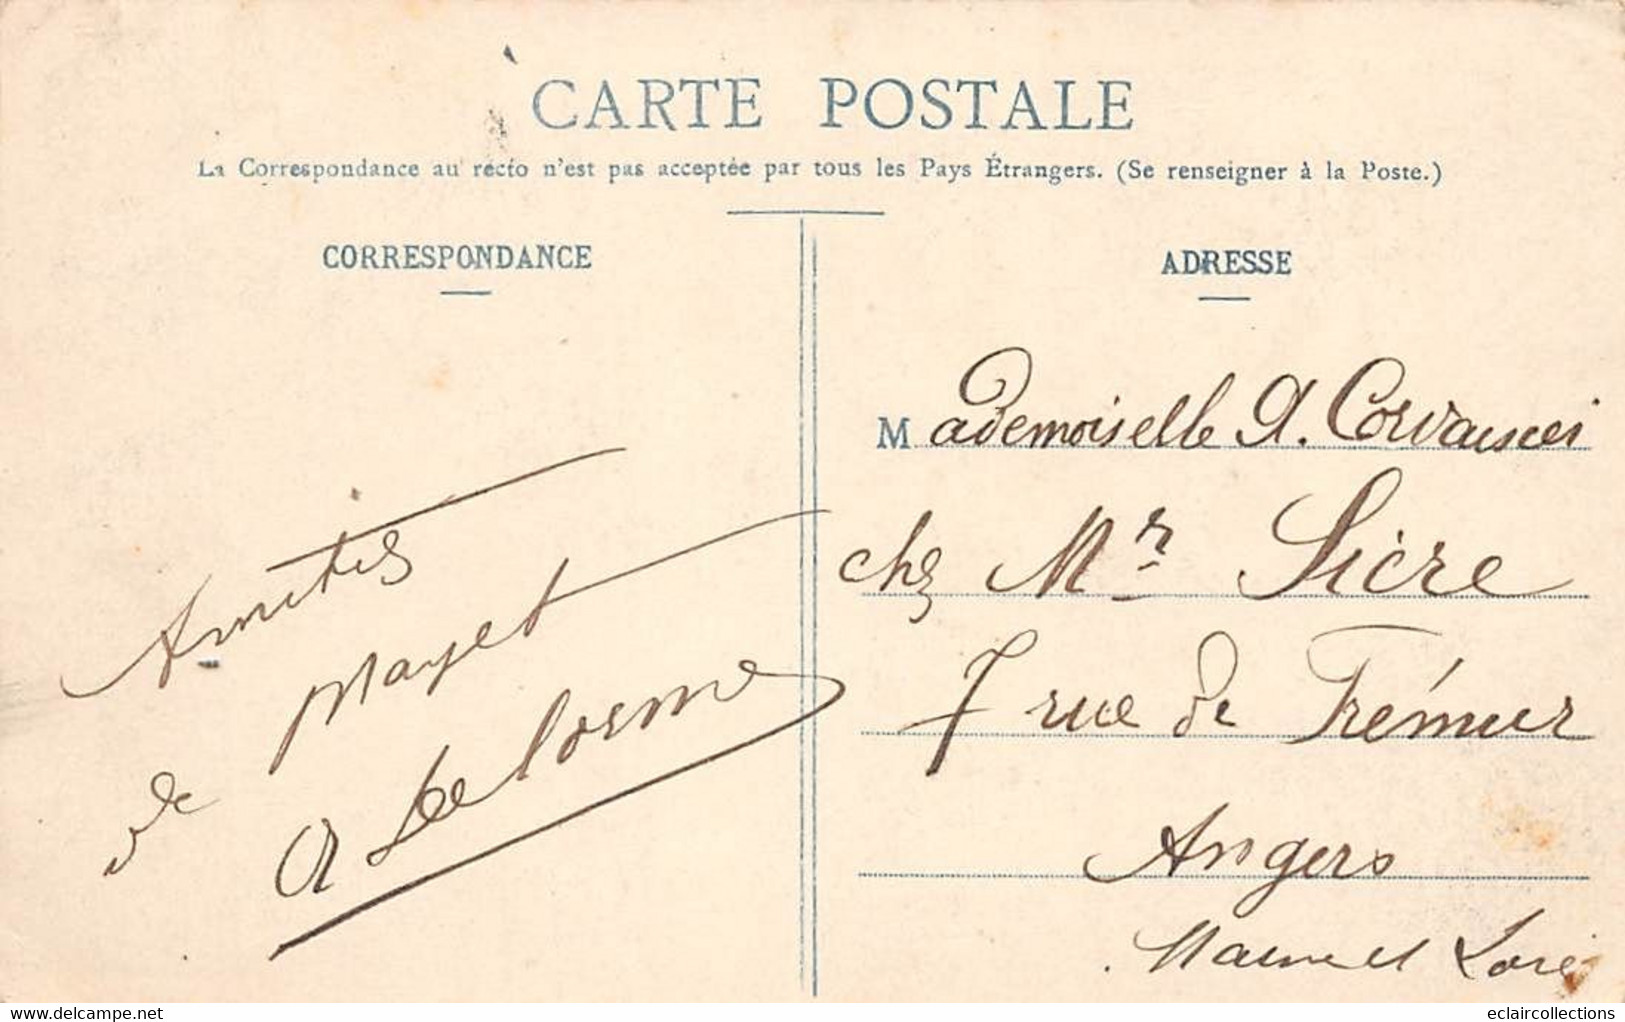 CARTE POSTALE
La Correspondance au recto n'est pas acceptée par tous les Pays Étrangers. (Se renseigner à la Poste.)
CORRESPONDANCE
Amitiés
de Mayet
A Delorme
ADRESSE
Mademoiselle A.
chez Mr Sicre
7 rue de Frémur
Angers
Maine et Loire
www.delcampe.net
eclaircollections